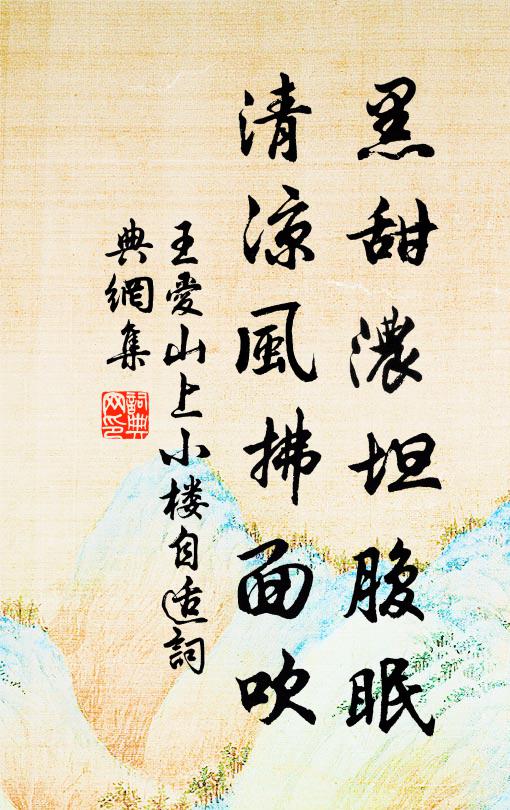 黑甜濃坦腹眠
清涼風拂面吹
王愛山上小楼自适詞
典網集
詞典
网印